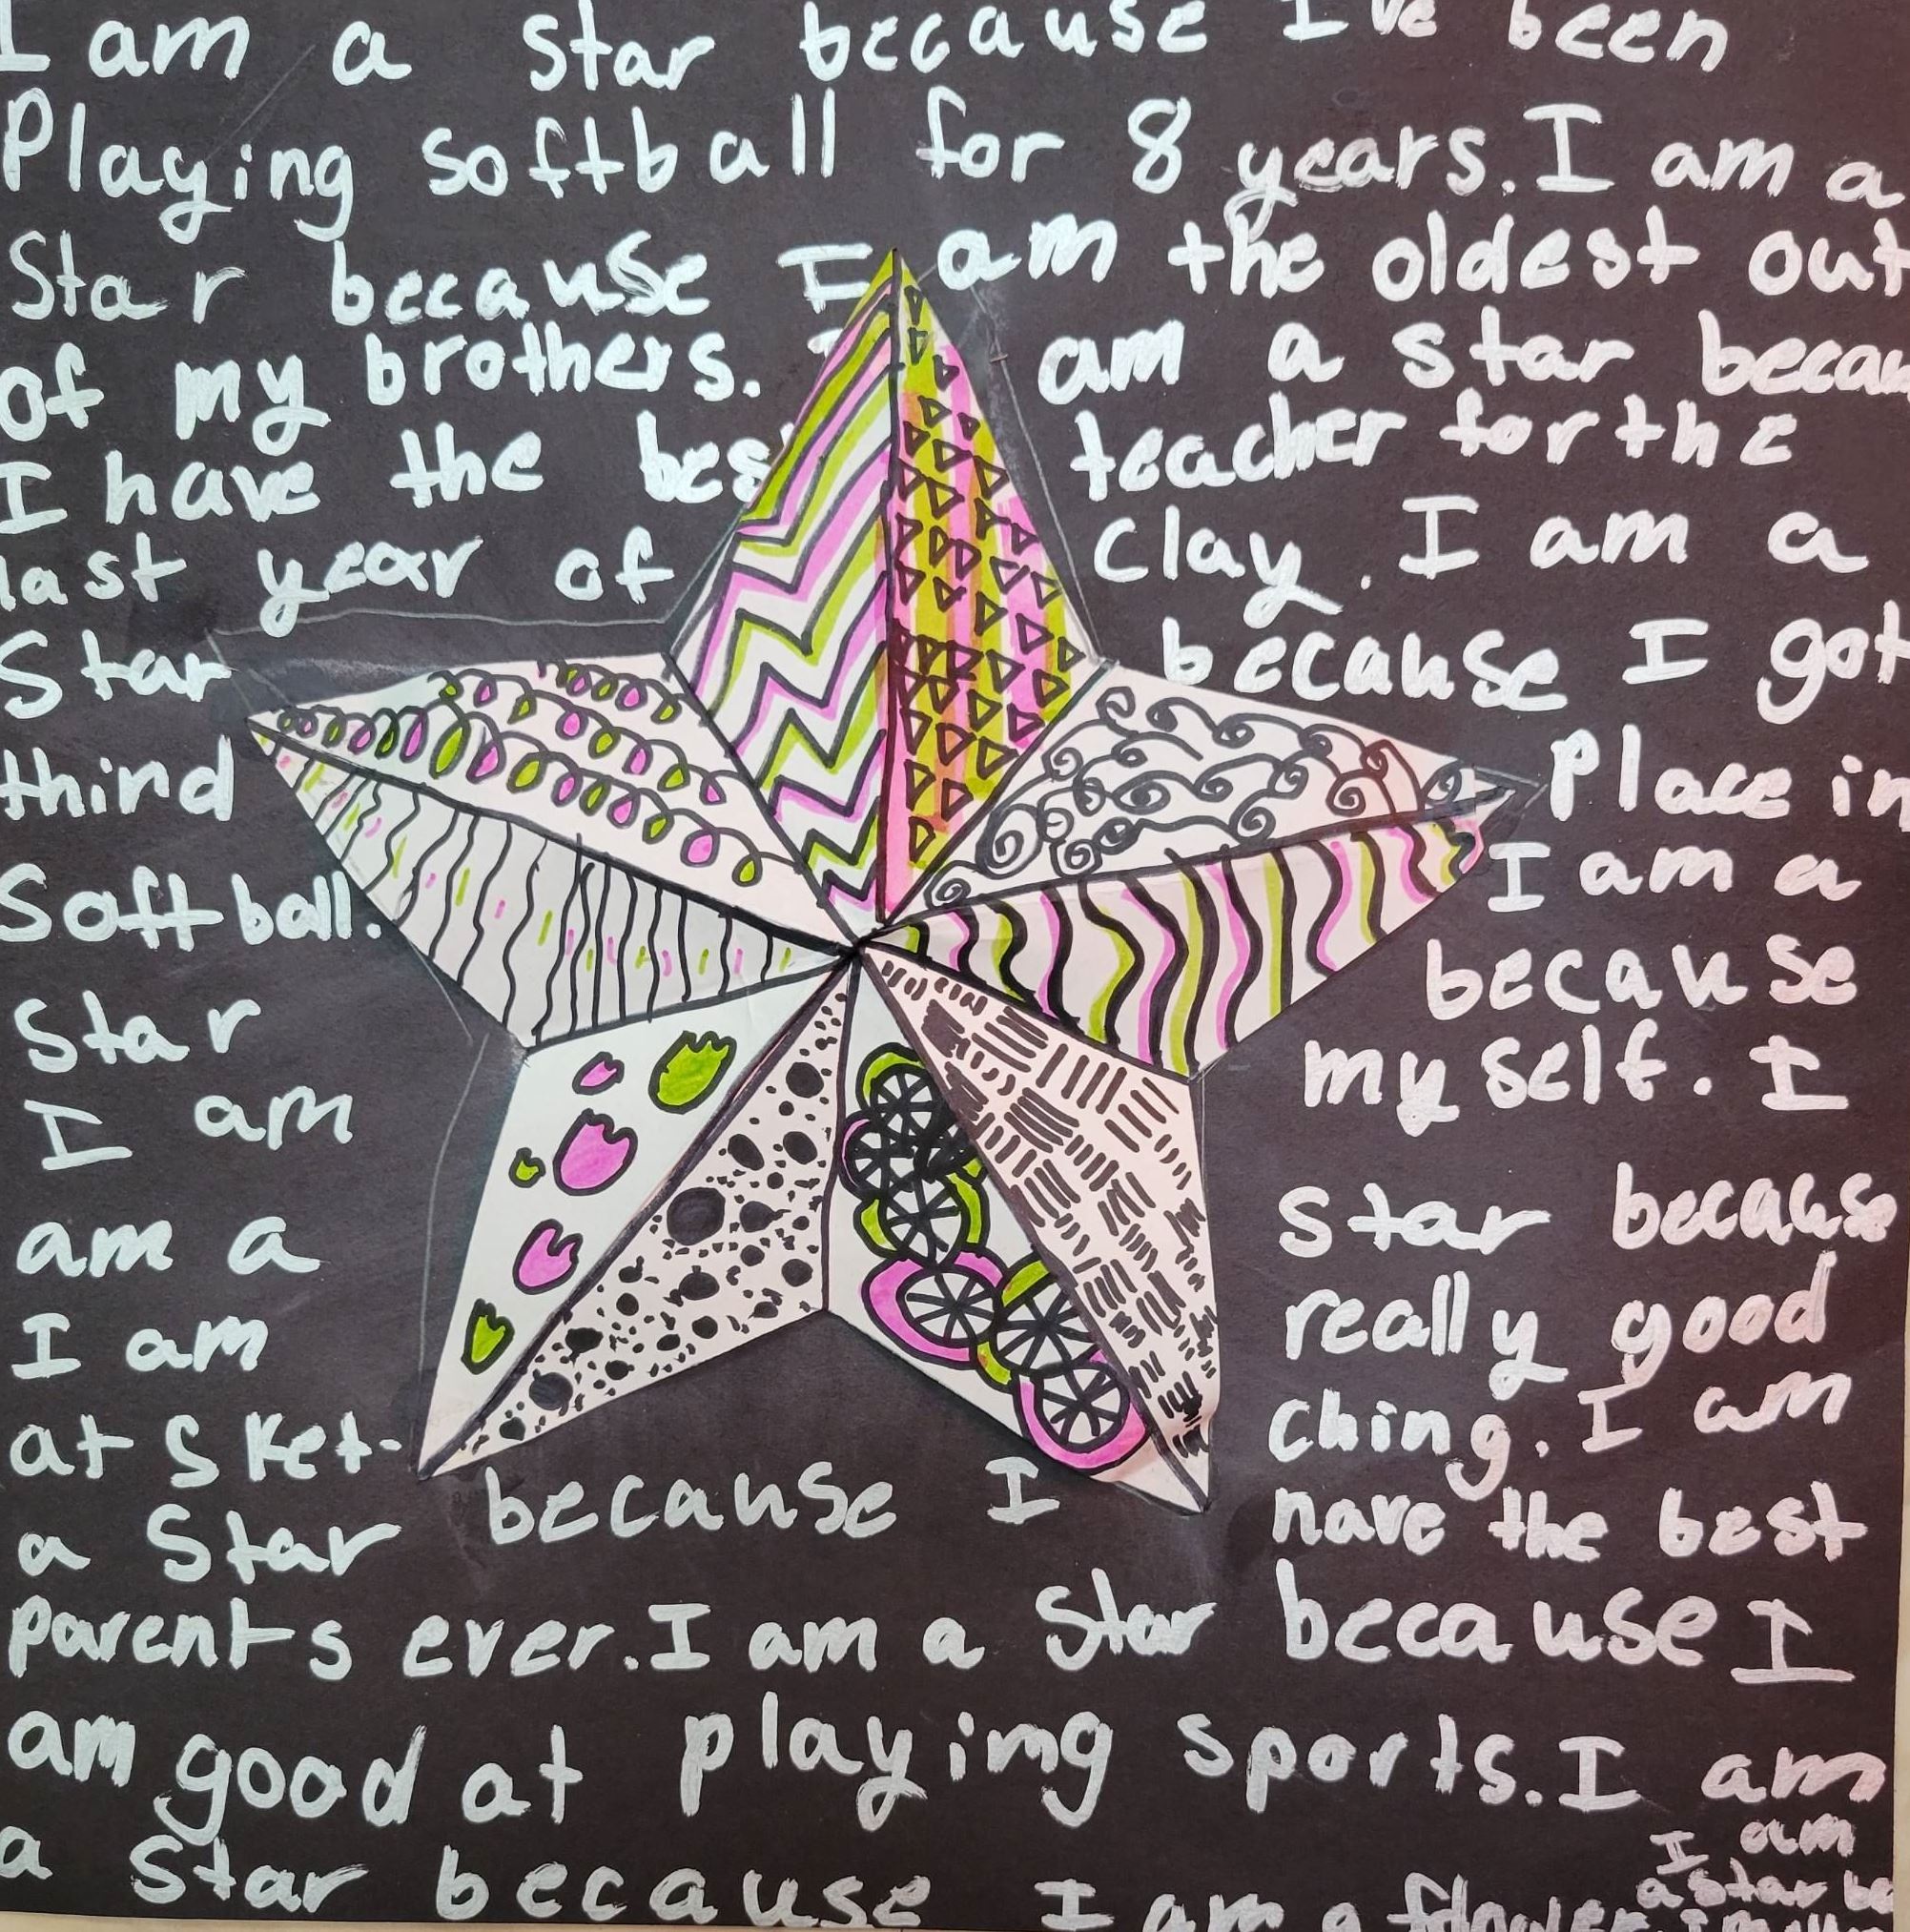 I am a star because I've been
Playing softball for 8 years. I am a
Star because I am the oldest out
of my brothers. I am a star becau
I have the bes teacher for the
last year of Clay. I am a
Star because I got
third Place in
Softball. I am a
Star because
I am my self. I
am a star becaus
I am really good
at sket- ching. I am
a Star because I have the best
parents ever. I am a Star because I
am good at playing sports. I am
a Star because I am a
I am
a star be